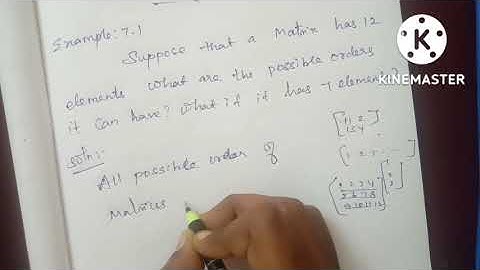 Example: 7.1
Suppose that a Matrix has 12
elements what are the possible orders
it can have? What if it has 7 elements?
Soln:
All possible order of
Matrices
K
KINEMASTER